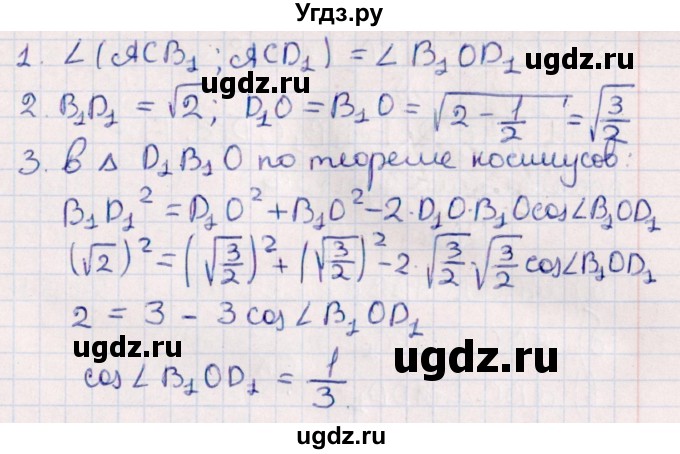 Угдз.ру
1. ∠(ACB₁; ACD₁) = ∠B₁OD₁
ugdz.ru
ugdz.ru
2. B₁D₁ = √2; D₁O = B₁O = √(2 - 1/2) = √(3/2)
ugdz.ru
3. В Δ D₁B₁O по теореме косинусов:
B₁D₁² = D₁O² + B₁O² - 2·D₁O·B₁O cos∠B₁OD₁
ugdz.ru
(√2)² = (√(3/2))² + (√(3/2))² - 2·√(3/2)·√(3/2) cos∠B₁OD₁
2 = 3 - 3cos∠B₁OD₁
ugdz.ru
ugdz.ru
cos∠B₁OD₁ = 1/3.
ugdz.ru